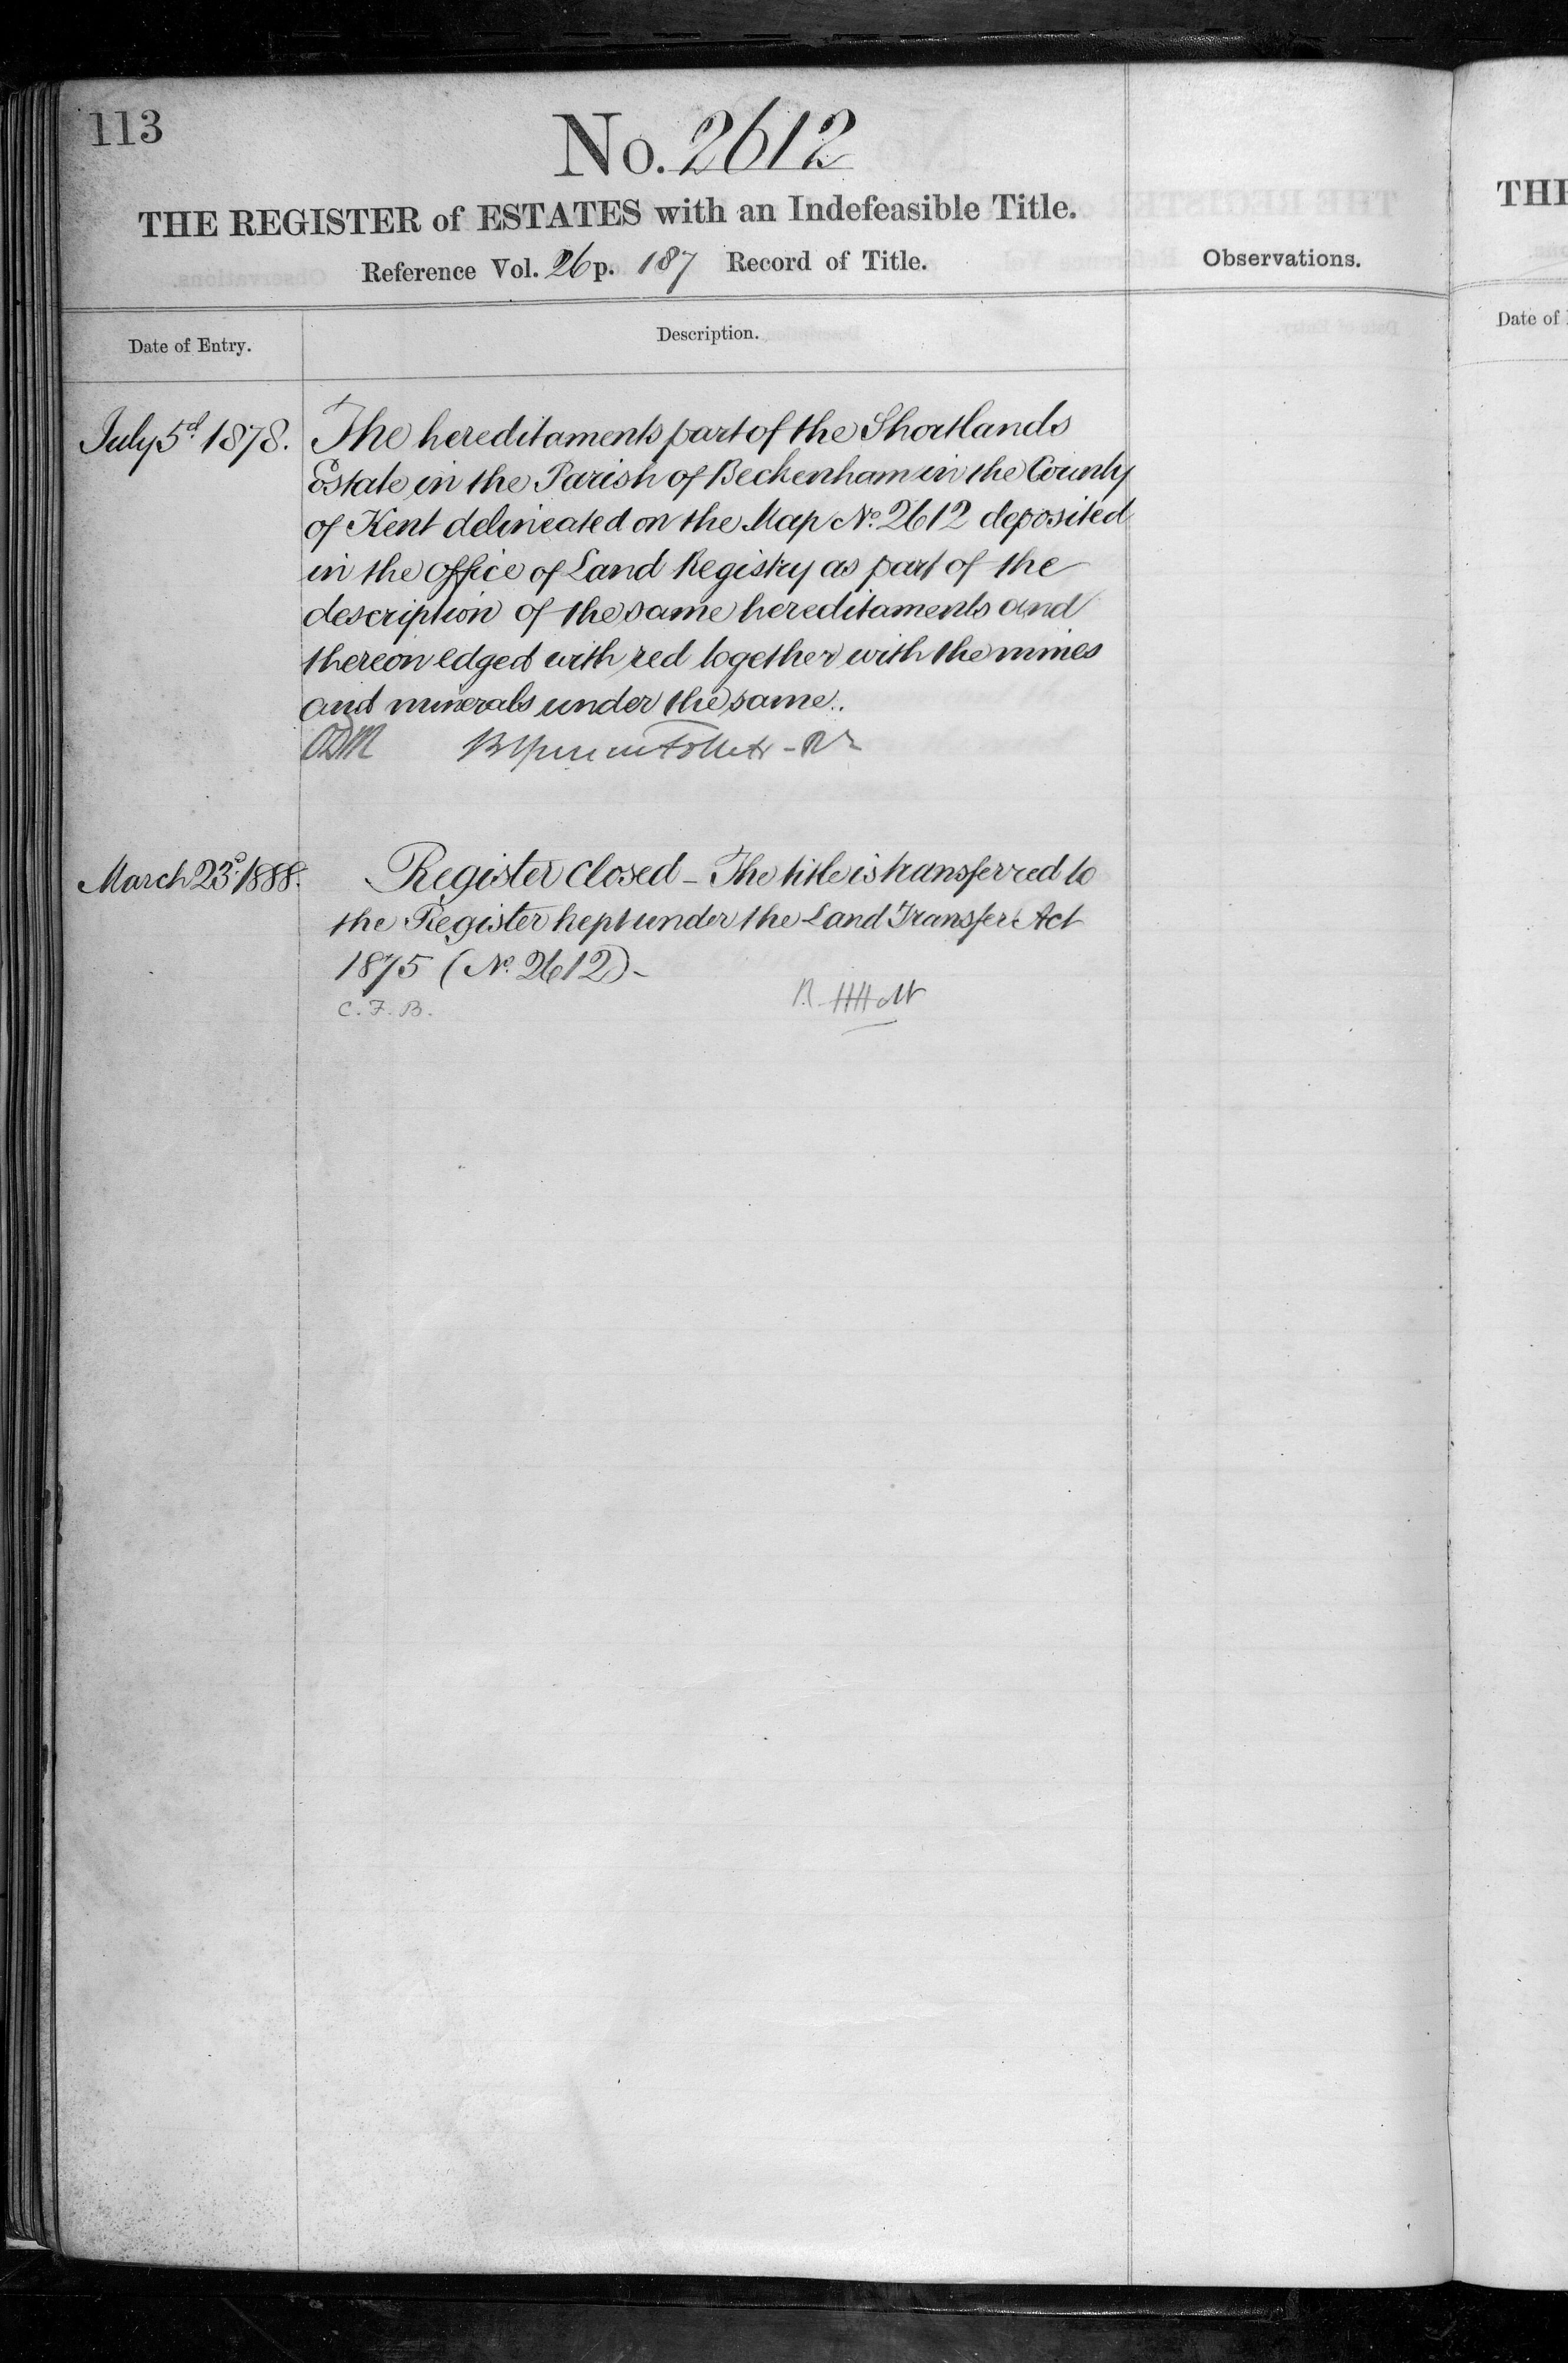 113
No. 2612
THE REGISTER of ESTATES with an Indefeasible Title.
Reference Vol. 26 p. 187 Record of Title.
Observations.
Date of Entry.
Description.
July 5d. 1878.
The hereditaments part of the Shortlands
Estate in the Parish of Beckenham in the County
of Kent delineated on the Map No. 2612 deposited
in the Office of Land Registry as part of the
description of the same hereditaments and
thereon edged with red together with the mines
and minerals under the same.
March 23d. 1888.
Register closed - The title is transferred to
the Register kept under the Land Transfer Act
1875 (No. 2612) -
C. F. B.
THE
Date of